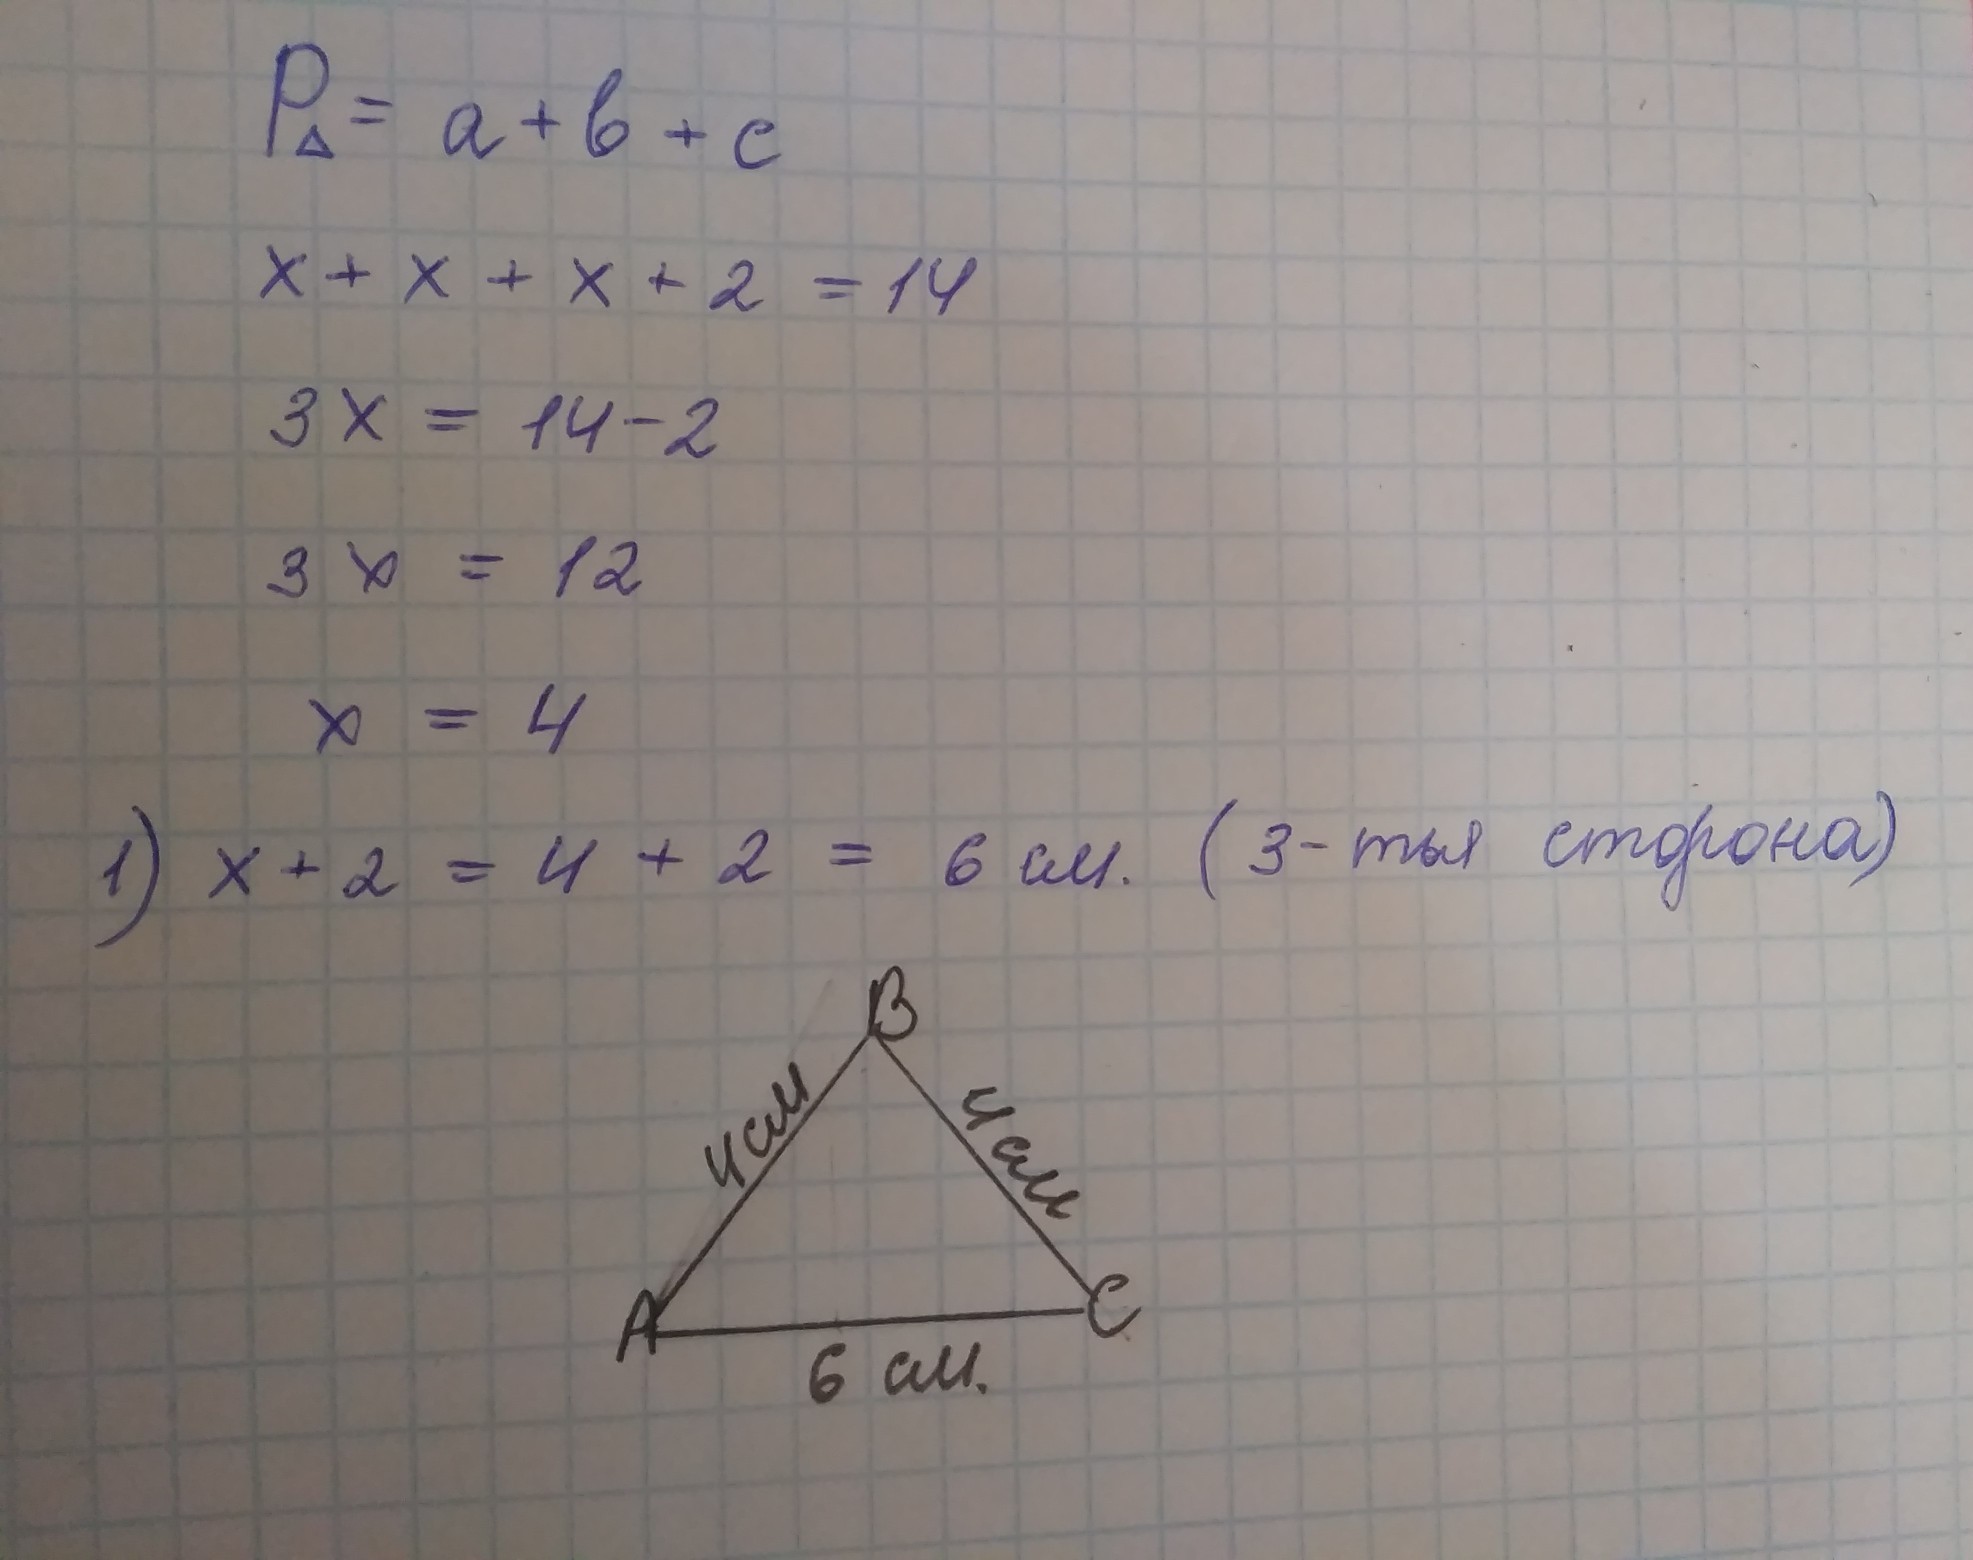 P△ = a + b + c
x + x + x + 2 = 14
3x = 14 - 2
3x = 12
x = 4
1) x + 2 = 4 + 2 = 6 см. (3-тья сторона)
B
4 см
4 см
A
C
6 см.